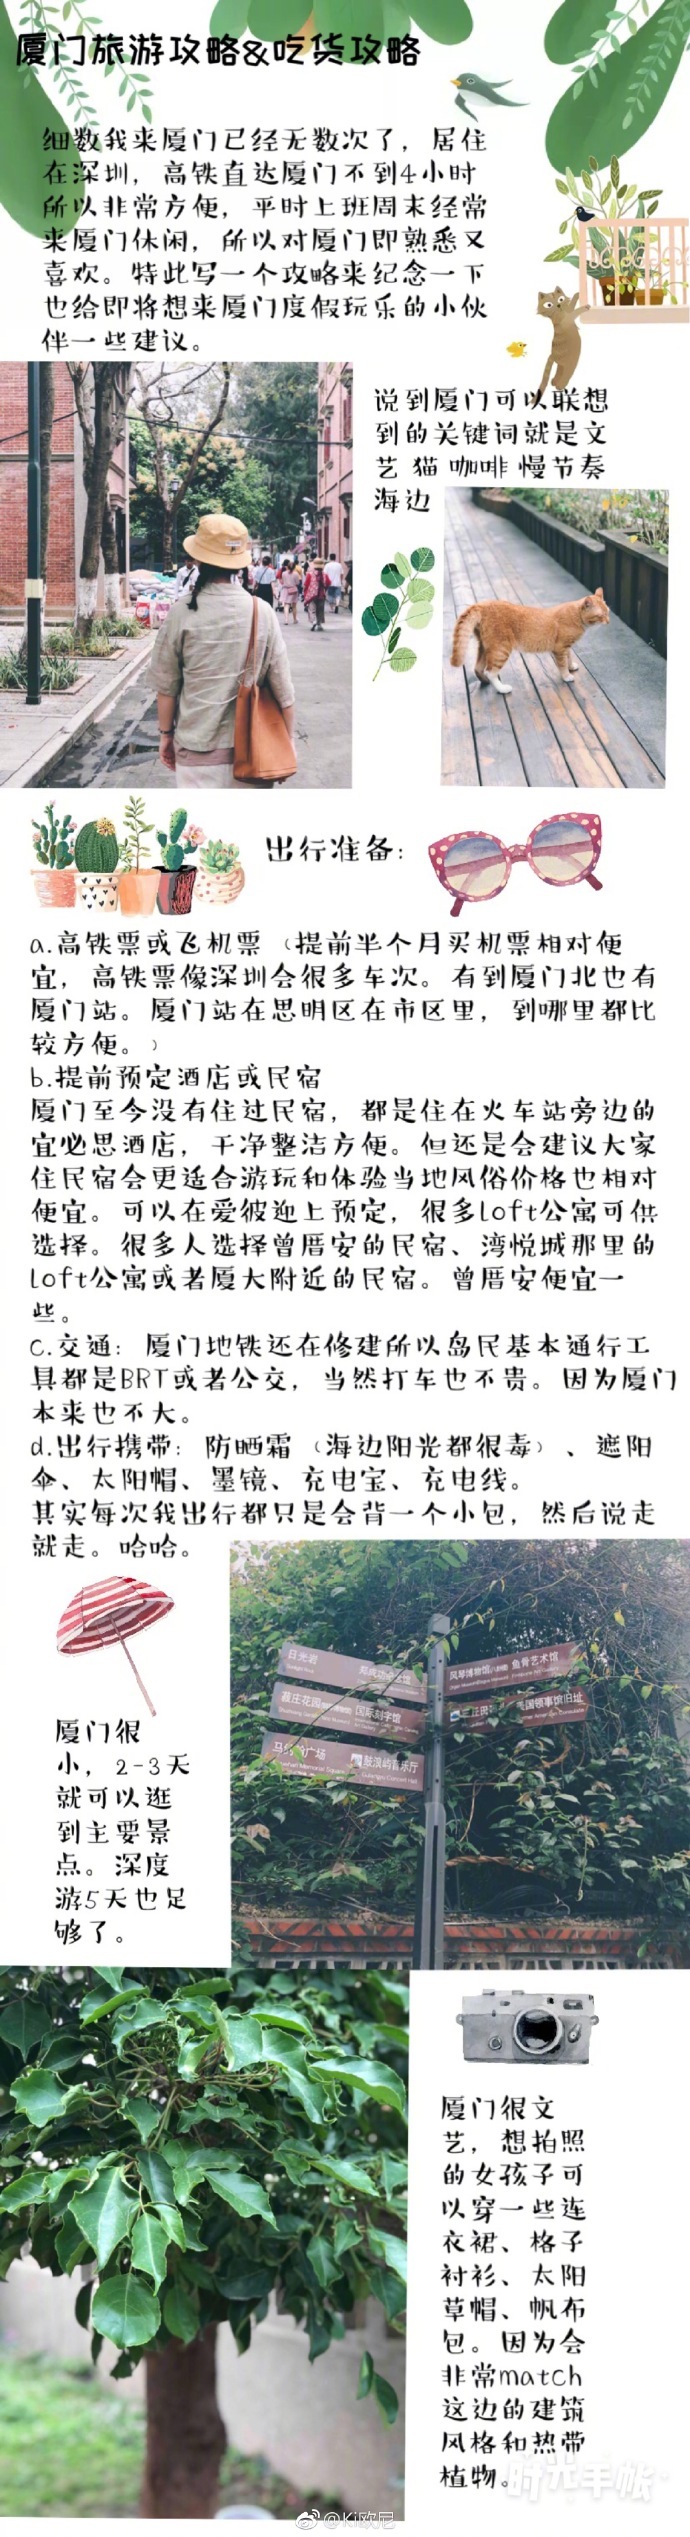 厦门旅游攻略&吃货攻略
细数我来厦门已经无数次了，居住
在深圳，高铁直达厦门不到4小时
所以非常方便，平时上班周末经常
来厦门休闲，所以对厦门即熟悉又
喜欢。特此写一个攻略来纪念一下
也给即将想来厦门度假玩乐的小伙
伴一些建议。
说到厦门可以联想
到的关键词就是文
艺 猫 咖啡 慢节奏
海边
出行准备：
a.高铁票或飞机票（提前半个月买机票相对便
宜，高铁票像深圳会很多车次。有到厦门北也有
厦门站。厦门站在思明区在市区里，到哪里都比
较方便。）
b.提前预定酒店或民宿
厦门至今没有住过民宿，都是住在火车站旁边的
宜必思酒店，干净整洁方便。但还是会建议大家
住民宿会更适合游玩和体验当地风俗价格也相对
便宜。可以在爱彼迎上预定，很多loft公寓可供
选择。很多人选择曾厝安的民宿、湾悦城那里的
loft公寓或者厦大附近的民宿。曾厝安便宜一
些。
c.交通：厦门地铁还在修建所以岛民基本通行工
具都是BRT或者公交，当然打车也不贵。因为厦门
本来也不大。
d.出行携带：防晒霜（海边阳光都很毒）、遮阳
伞、太阳帽、墨镜、充电宝、充电线。
其实每次我出行都只是会背一个小包，然后说走
就走。哈哈。
日光岩
风琴博物馆 鱼骨艺术馆
菽庄花园 国际刻字馆
美国领事馆旧址
广场 鼓浪屿音乐厅
厦门很
小，2-3天
就可以逛
到主要景
点。深度
游5天也足
够了。
厦门很文
艺，想拍照
的女孩子可
以穿一些连
衣裙、格子
衬衫、太阳
草帽、帆布
包。因为会
非常match
这边的建筑
风格和热带
植物。
时光手帐
@Ki欧尼